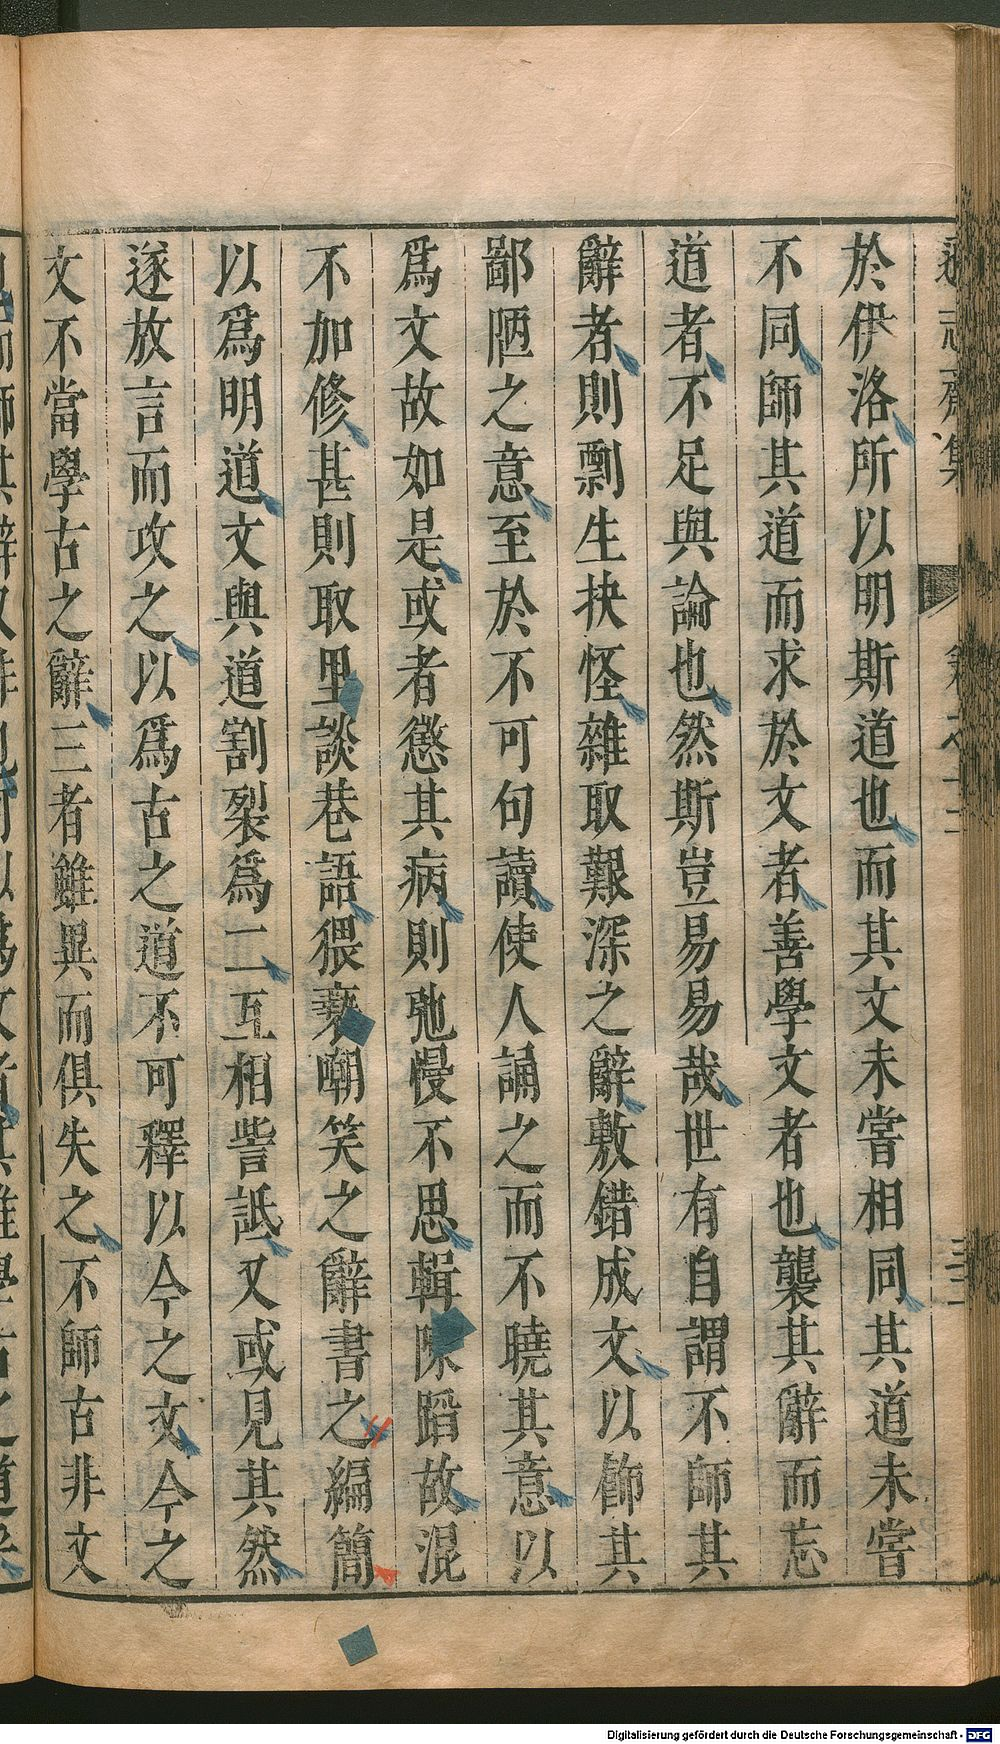 於伊洛所以明斯道也而其文未嘗相同其道未嘗
不同師其道而求於文者善學文者也襲其辭而忘
道者不足與論也然斯豈易易哉世有自謂不師其
辭者則剽生抉怪雜取艱深之辭敷錯成文以飾其
鄙陋之意至於不可句讀使人誦之而不曉其意以
爲文故如是或者懲其病則弛慢不思輯陳蹈故混
不加修甚則取里談巷語猥褻嘲笑之辭書之編簡
以爲明道文與道割裂爲二互相訾詆又或見其然
遂放言而攻之以爲古之道不可釋以今之文今之
文不當學古之辭三者雖異而俱失之不師古非文
Digitalisierung gefördert durch die Deutsche Forschungsgemeinschaft - DFG